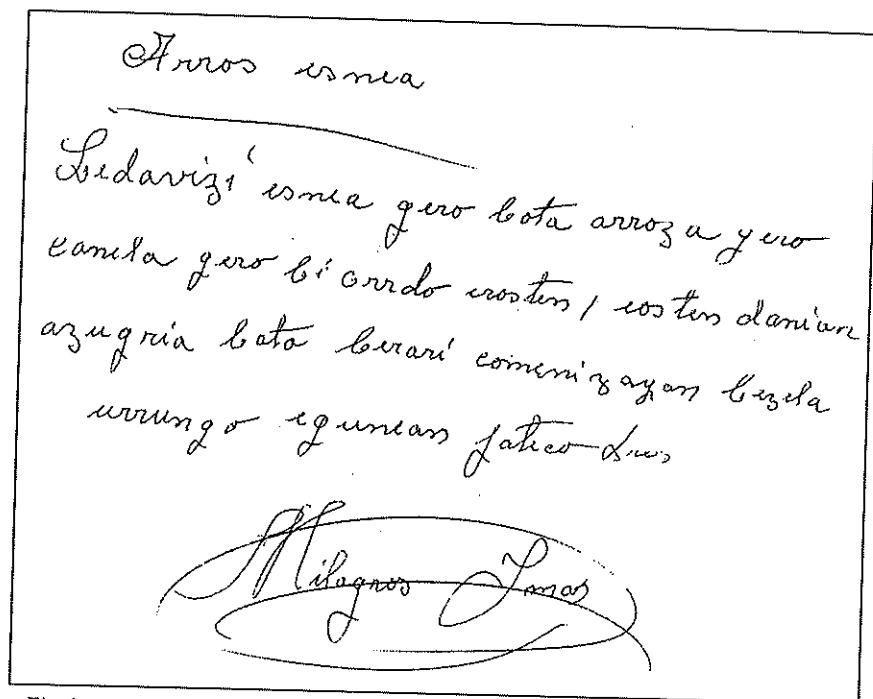 Arros esnea
esnea gero bota arroz a gero
canela gero bi orrdo erosten, eosten danian
azugria bota berari comenizayan bezela
urrungo egunean jateco
Milagros Imaz